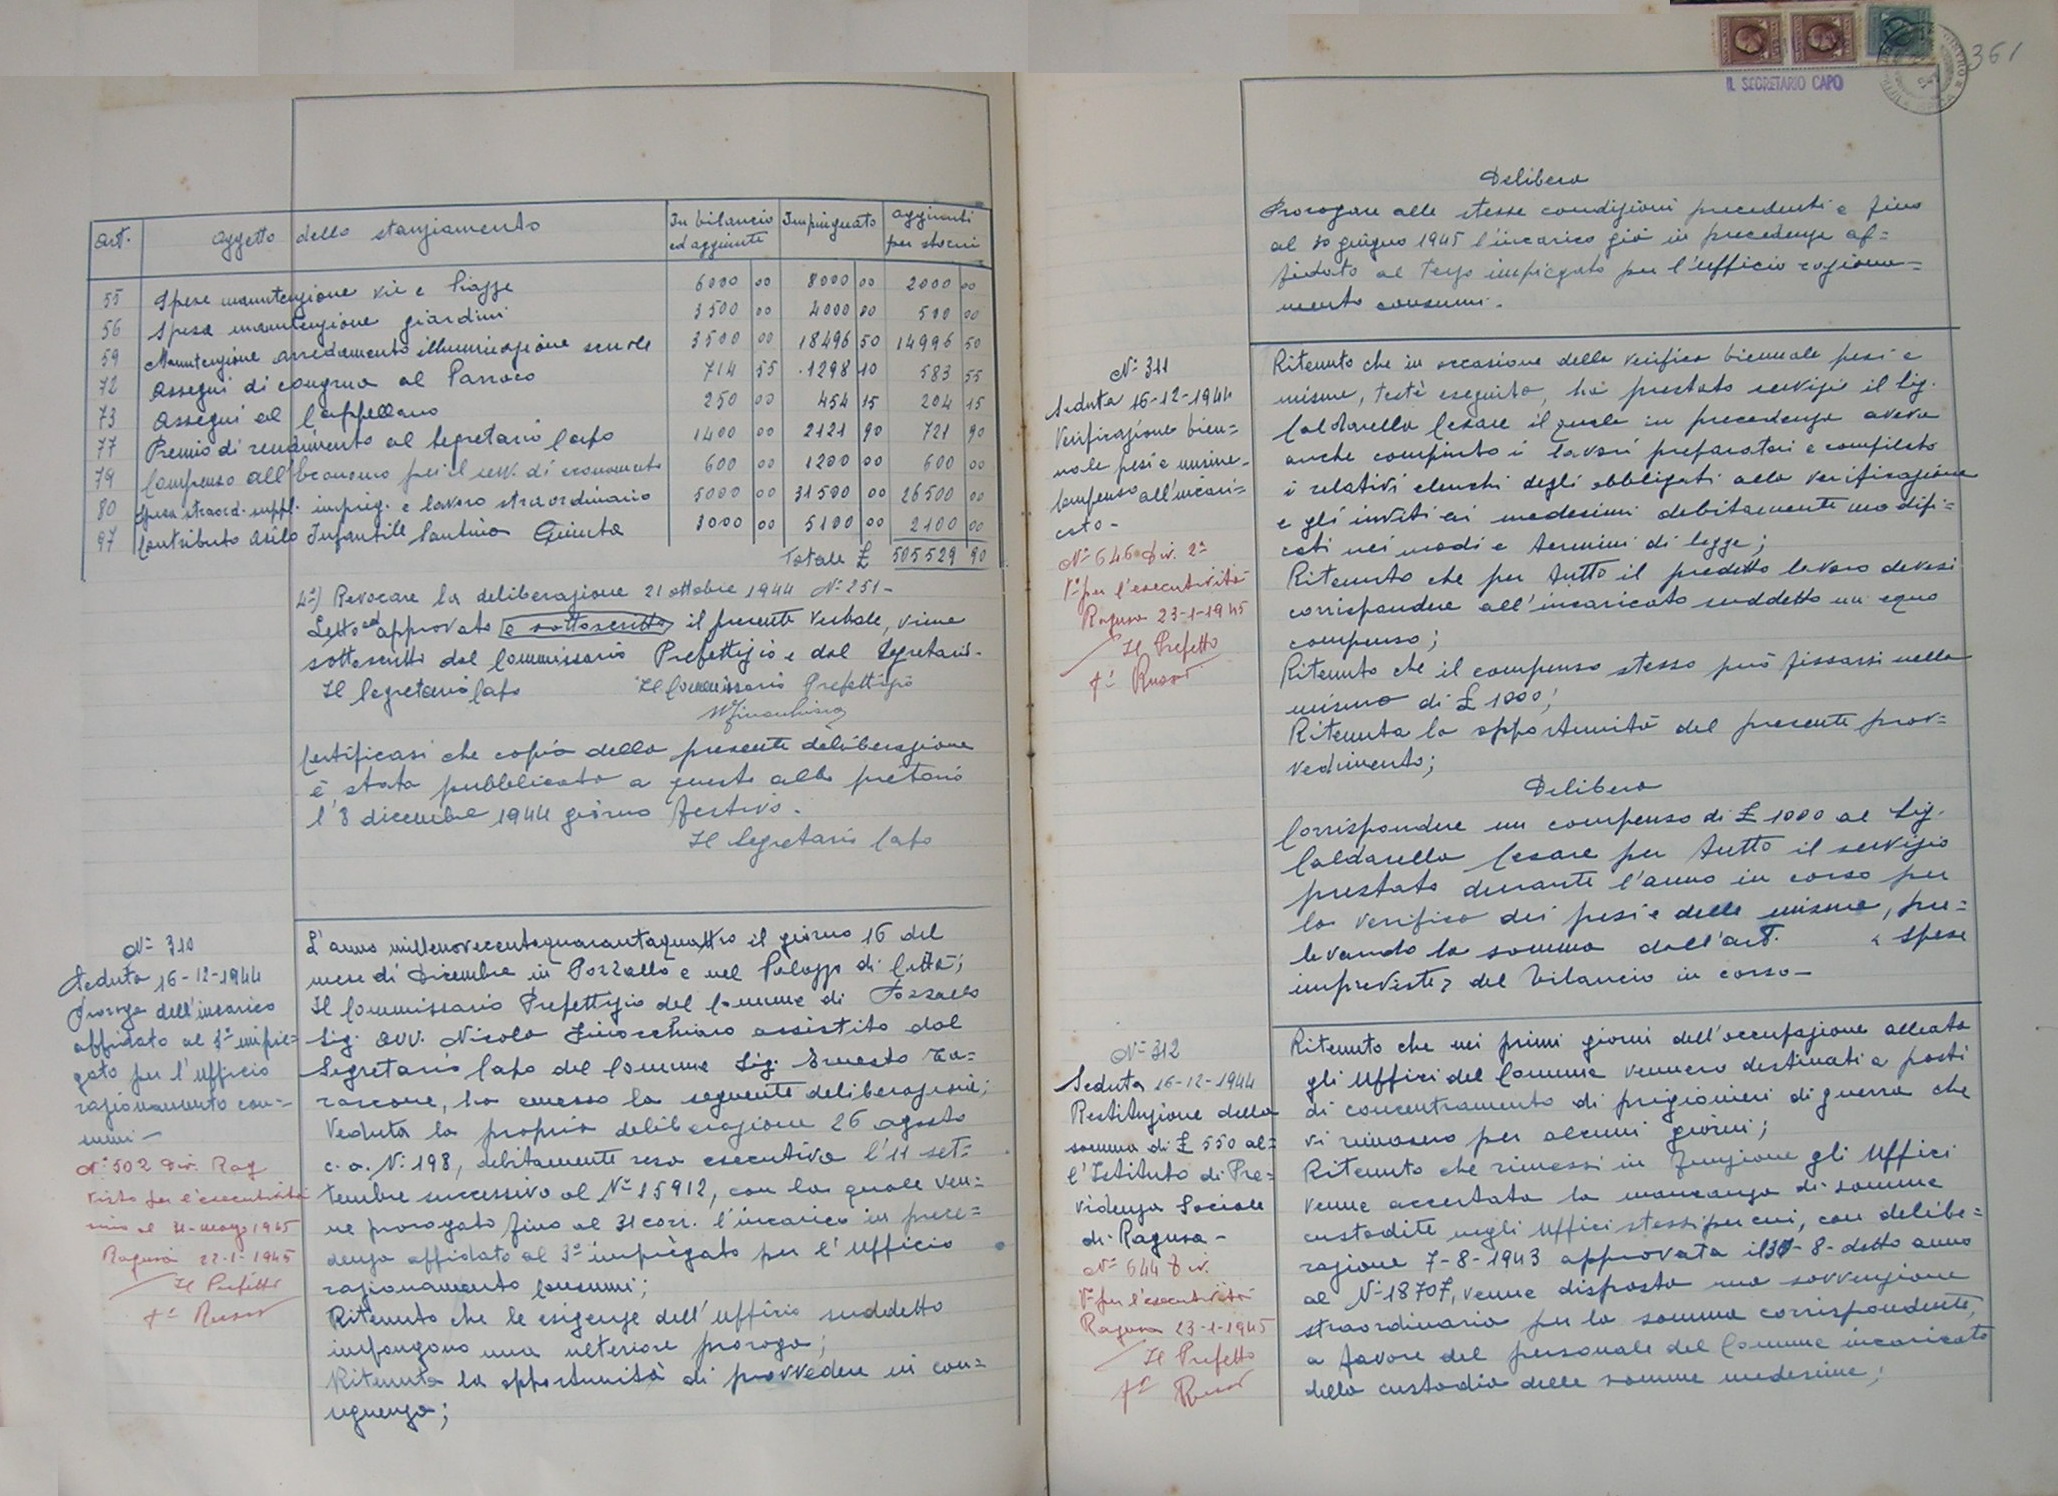 Art. | Oggetto dello stanziamento | In bilancio ed aggiunte | Impinguato | aggiunti per storni
55 Spese manutenzione vie e Piazze 6000 00 8000 00 2000 00
56 Spesa manutenzione giardini 3500 00 4000 00 500 00
59 Manutenzione arredamento illuminazione scuole 3500 00 18496 50 14996 50
72 Assegni di congrua al Parroco 714 55 1298 10 583 55
73 Assegni al Cappellano 250 00 454 15 204 15
77 Premio di rendimento al Segretario Capo 1400 00 2121 90 721 90
79 Compenso all'Economo per il serv. di economato 600 00 1200 00 600 00
80 Spesa straord. suppl. impieg. e lavoro straordinario 5000 00 31500 00 26500 00
97 Contributo Asilo Infantile Santina Quinta 3000 00 5100 00 2100 00
Totale £ 505529 90
4°) Revocare la deliberazione 21 ottobre 1944 N° 251-
Letto ed approvato e sottoscritto il presente Verbale, viene
sottoscritto dal Commissario Prefettizio e dal Segretario-
Il Segretario Capo Il Commissario Prefettizio
Certificasi che copia della presente deliberazione
è stata pubblicata a questo albo pretorio
l'8 dicembre 1944 giorno festivo.
Il Segretario Capo
N° 310
Seduta 16-12-1944
Proroga dell'incarico
affidato al 3° impie=
gato per l'Ufficio
razionamento con=
sumi-
N° 502 Div. Rag
Visto per l'esecutività
sino al 31-marzo 1945
Ragusa 22-1-1945
Il Prefetto
f° Russo
L'anno millenovecentoquarantaquattro il giorno 16 del
mese di Dicembre in Pozzallo e nel Palazzo di Città;
Il Commissario Prefettizio del Comune di Pozzallo
Sig. Avv. Nicola Finocchiaro assistito dal
Segretario Capo del Comune Sig. Ernesto Ta=
rascone, ha emesso la seguente deliberazione;
Veduta la propria deliberazione 26 agosto
c. a. N. 198, debitamente resa esecutiva l'11 set=
tembre successivo al N° 15912, con la quale ven=
ne prorogato fino al 31 corr. l'incarico in prece=
denza affidato al 3° impiegato per l'Ufficio
razionamento Consumi;
Ritenuto che le esigenze dell'Ufficio suddetto
impongono una ulteriore proroga;
Ritenuta la opportunità di provvedere in con=
seguenza;
IL SEGRETARIO CAPO
361
Delibera
Prorogare alle stesse condizioni precedenti e fino
al 30 giugno 1945 l'incarico già in precedenza af=
fidato al terzo impiegato per l'Ufficio raziona=
mento consumi.
N° 311
Seduta 16-12-1944
Verificazione bien=
nale pesi e misure-
Compenso all'incari=
cato-
N° 646 Div. 2ª
V° per l'esecutività
Ragusa 23-1-1945
Il Prefetto
f° Russo
Ritenuto che in occasione della verifica biennale pesi e
misure, testè eseguita, ha prestato servizio il Sig.
Caldarella Cesare il quale in precedenza aveva
anche compiuto i lavori preparatori e compilato
i relativi elenchi degli obbligati alla verificazione
e gli inviti ai medesimi debitamente modifi=
cati nei modi e termini di legge;
Ritenuto che per tutto il predetto lavoro devesi
corrispondere all'incaricato suddetto un equo
compenso;
Ritenuto che il compenso stesso può fissarsi nella
misura di £ 1000;
Ritenuta la opportunità del presente prov=
vedimento;
Delibera
Corrispondere un compenso di £ 1000 al Sig.
Caldarella Cesare per tutto il servizio
prestato durante l'anno in corso per
la verifica dei pesi e delle misure, pre=
levando la somma dall'art. « Spese
impreviste» del bilancio in corso-
N° 312
Seduta 16-12-1944
Restituzione della
somma di £ 550 al=
l'Istituto di Pre=
videnza Sociale
di Ragusa-
N° 644 Div.
V° per l'esecutività
Ragusa 23-1-1945
Il Prefetto
f° Russo
Ritenuto che nei primi giorni dell'occupazione alleata
gli Uffici del Comune vennero destinati a posti
di concentramento di prigionieri di guerra che
vi rimasero per alcuni giorni;
Ritenuto che rimessi in funzione gli Uffici
venne accertata la mancanza di somme
custodite negli Uffici stessi per cui, con delibe=
razione 7-8-1943 approvata il 30-8-detto anno
al N° 18707, venne disposta una sovvenzione
straordinaria per la somma corrispondente,
a favore del personale del Comune incaricato
della custodia delle somme medesime;